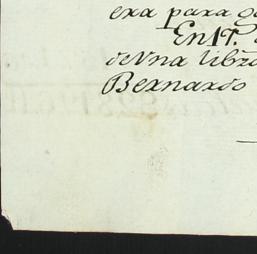 era para
En 17.
de Vna libra
Bernardo